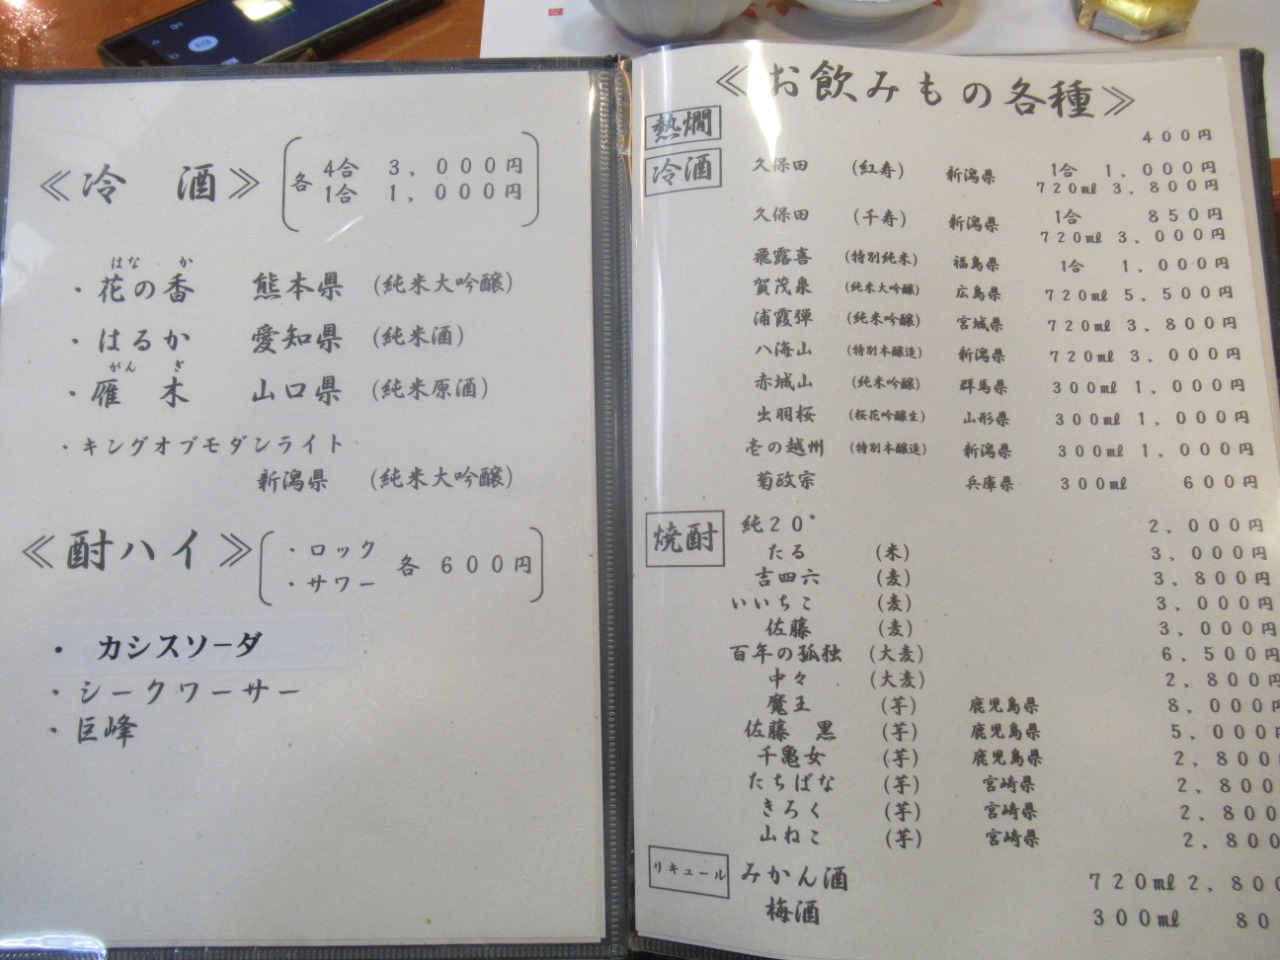 ≪冷 酒≫ 各 4合 3,000円
1合 1,000円
はな か
・花の香 熊本県 (純米大吟醸)
・はるか 愛知県 (純米酒)
がん ぎ
・雁 木 山口県 (純米原酒)
・キングオブモダンライト
新潟県 (純米大吟醸)
≪酎ハイ≫ ・ロック
・サワー 各 600円
・ カシスソーダ
・シークワーサー
・巨峰
≪お飲みもの各種≫
熱燗 400円
冷酒 久保田 (紅寿) 新潟県 1合 1,000円
720㎖ 3,800円
久保田 (千寿) 新潟県 1合 850円
720㎖ 3,000円
飛露喜 (特別純米) 福島県 1合 1,000円
賀茂泉 (純米大吟醸) 広島県 720㎖ 5,500円
浦霞弾 (純米吟醸) 宮城県 720㎖ 3,800円
八海山 (特別本醸造) 新潟県 720㎖ 3,000円
赤城山 (純米吟醸) 群馬県 300㎖ 1,000円
出羽桜 (桜花吟醸生) 山形県 300㎖ 1,000円
壱の越州 (特別本醸造) 新潟県 300㎖ 1,000円
菊政宗 兵庫県 300㎖ 600円
焼酎 純20° 2,000円
たる (米) 3,000円
吉四六 (麦) 3,800円
いいちこ (麦) 3,000円
佐藤 (麦) 3,000円
百年の孤独 (大麦) 6,500円
中々 (大麦) 2,800円
魔王 (芋) 鹿児島県 8,000円
佐藤 黒 (芋) 鹿児島県 5,000円
千亀女 (芋) 鹿児島県 2,800
たちばな (芋) 宮崎県 2,800
きろく (芋) 宮崎県 2,800
山ねこ (芋) 宮崎県 2,800
リキュール みかん酒 720㎖ 2,800
梅酒 300㎖ 80